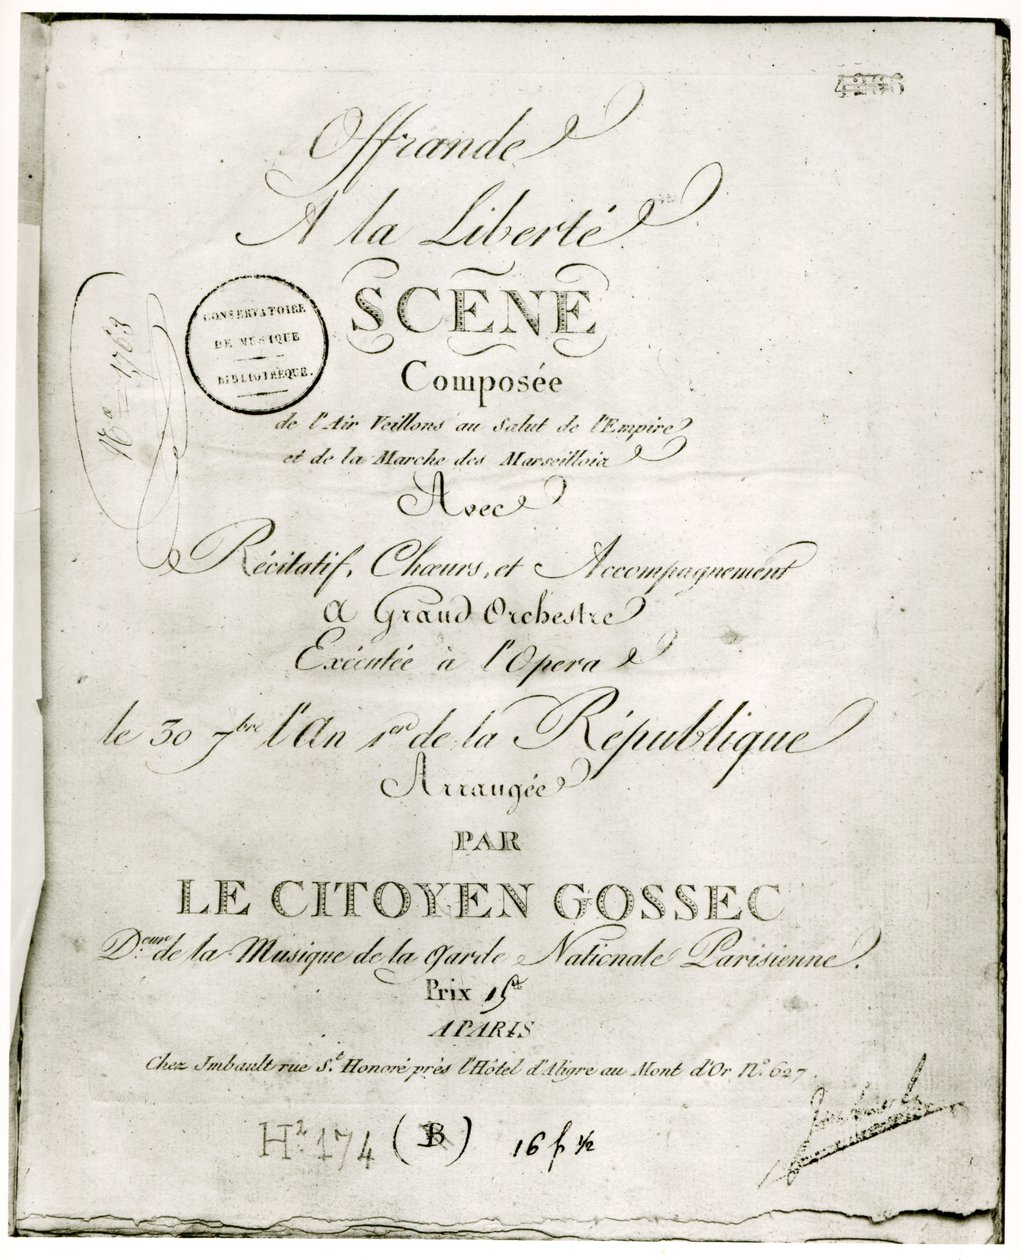 Offrande
A la Liberté
SCENE
Composée
de l'Air Veillons au Salut de l'Empire
et de la Marche des Marseillois
Avec
Récitatif, Chœurs, et Accompagnement
a Grand Orchestre
Exécutée à l'Opera
le 30 7bre l'An 1er de la République
Arrangée
PAR
LE CITOYEN GOSSEC
Deur de la Musique de la Garde Nationale Parisienne.
Prix 15tt
A PARIS
Chez Imbault rue St Honoré près l'Hôtel d'Aligre au Mont d'Or No. 627.
CONSERVATOIRE
DE MUSIQUE
BIBLIOTHÈQUE.
1763
H2 174 (B) 16 f 1/2